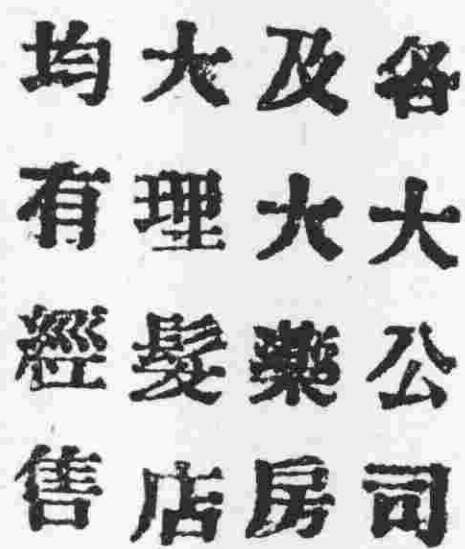 各大公司
及大藥房
大理髮店
均有經售